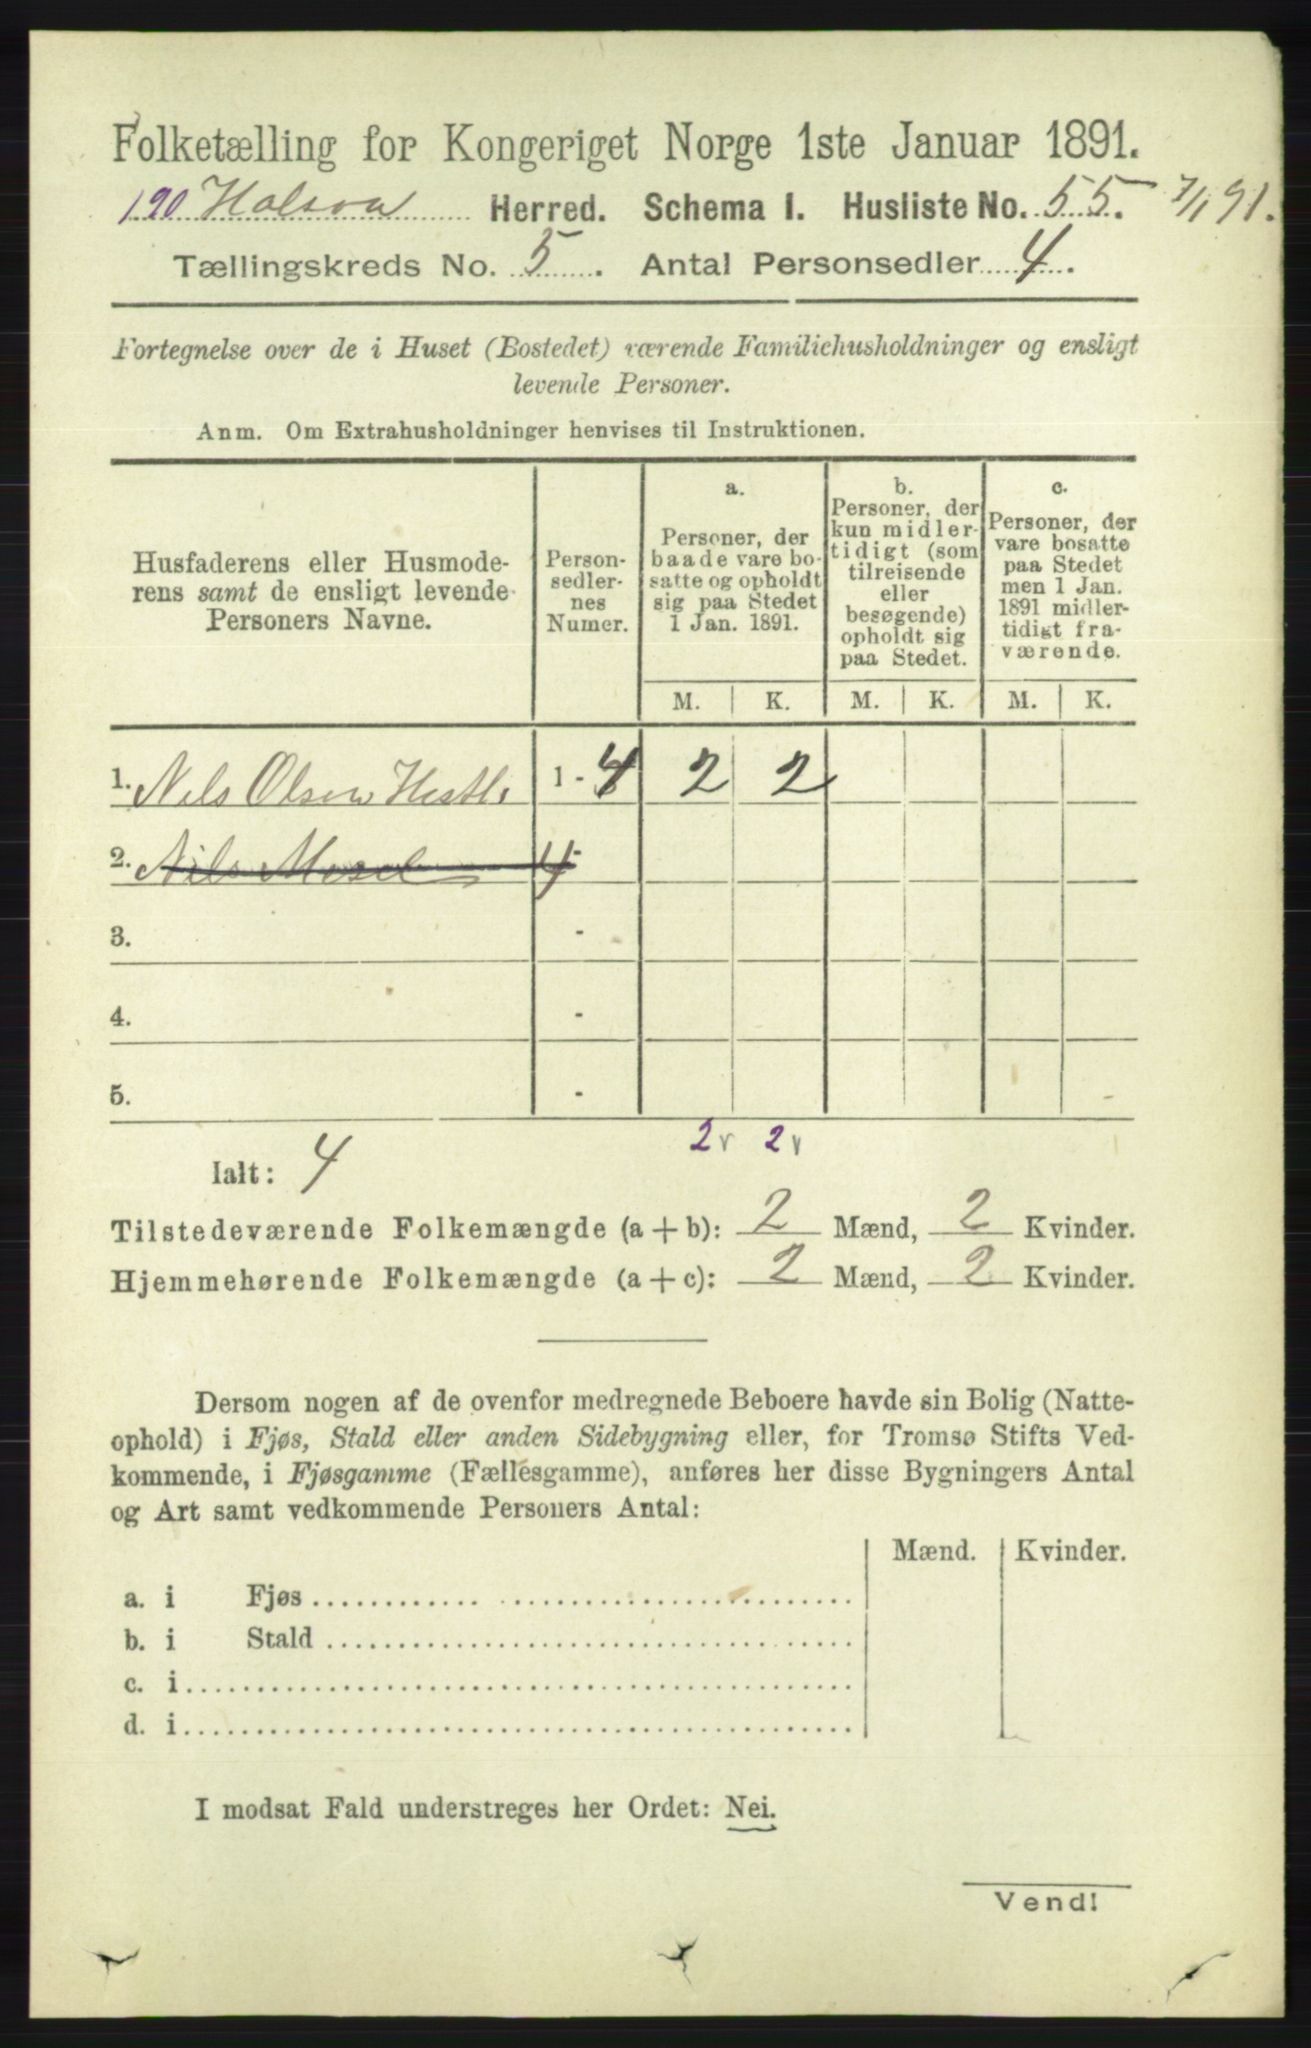 Folketælling for Kongeriget Norge 1ste Januar 1891.
190 Holsen Herred. Schema I. Husliste No. 55. 7/1 91.
Tællingskreds No. 5. Antal Personsedler 4.
Fortegnelse over de i Huset (Bostedet) værende Familiehusholdninger og ensligt
levende Personer.
Anm. Om Extrahusholdninger henvises til Instruktionen.
Husfaderens eller Husmode-
rens samt de ensligt levende
Personers Navne.
Person-
sedler-
nes
Numer.
a.
Personer, der
baade vare bo-
satte og opholdt
sig paa Stedet
1 Jan. 1891.
b.
Personer, der
kun midler-
tidigt (som
tilreisende
eller
besøgende)
opholdt sig
paa Stedet.
c.
Personer, der
vare bosatte
paa Stedet
men 1 Jan.
1891 midler-
tidigt fra-
værende.
M. K. M. K. M. K.
1. Nils Olsen 1 - 4 2 2
2. Nils 4
3. -
4. -
5. -
2 2
Ialt: 4
Tilstedeværende Folkemængde (a + b): 2 Mænd, 2 Kvinder.
Hjemmehørende Folkemængde (a + c): 2 Mænd, 2 Kvinder.
Dersom nogen af de ovenfor medregnede Beboere havde sin Bolig (Natte-
ophold) i Fjøs, Stald eller anden Sidebygning eller, for Tromsø Stifts Ved-
kommende, i Fjøsgamme (Fællesgamme), anføres her disse Bygningers Antal
og Art samt vedkommende Personers Antal:
Mænd. Kvinder.
a. i Fjøs
b. i Stald
c. i
d. i
I modsat Fald understreges her Ordet: Nei.
Vend!